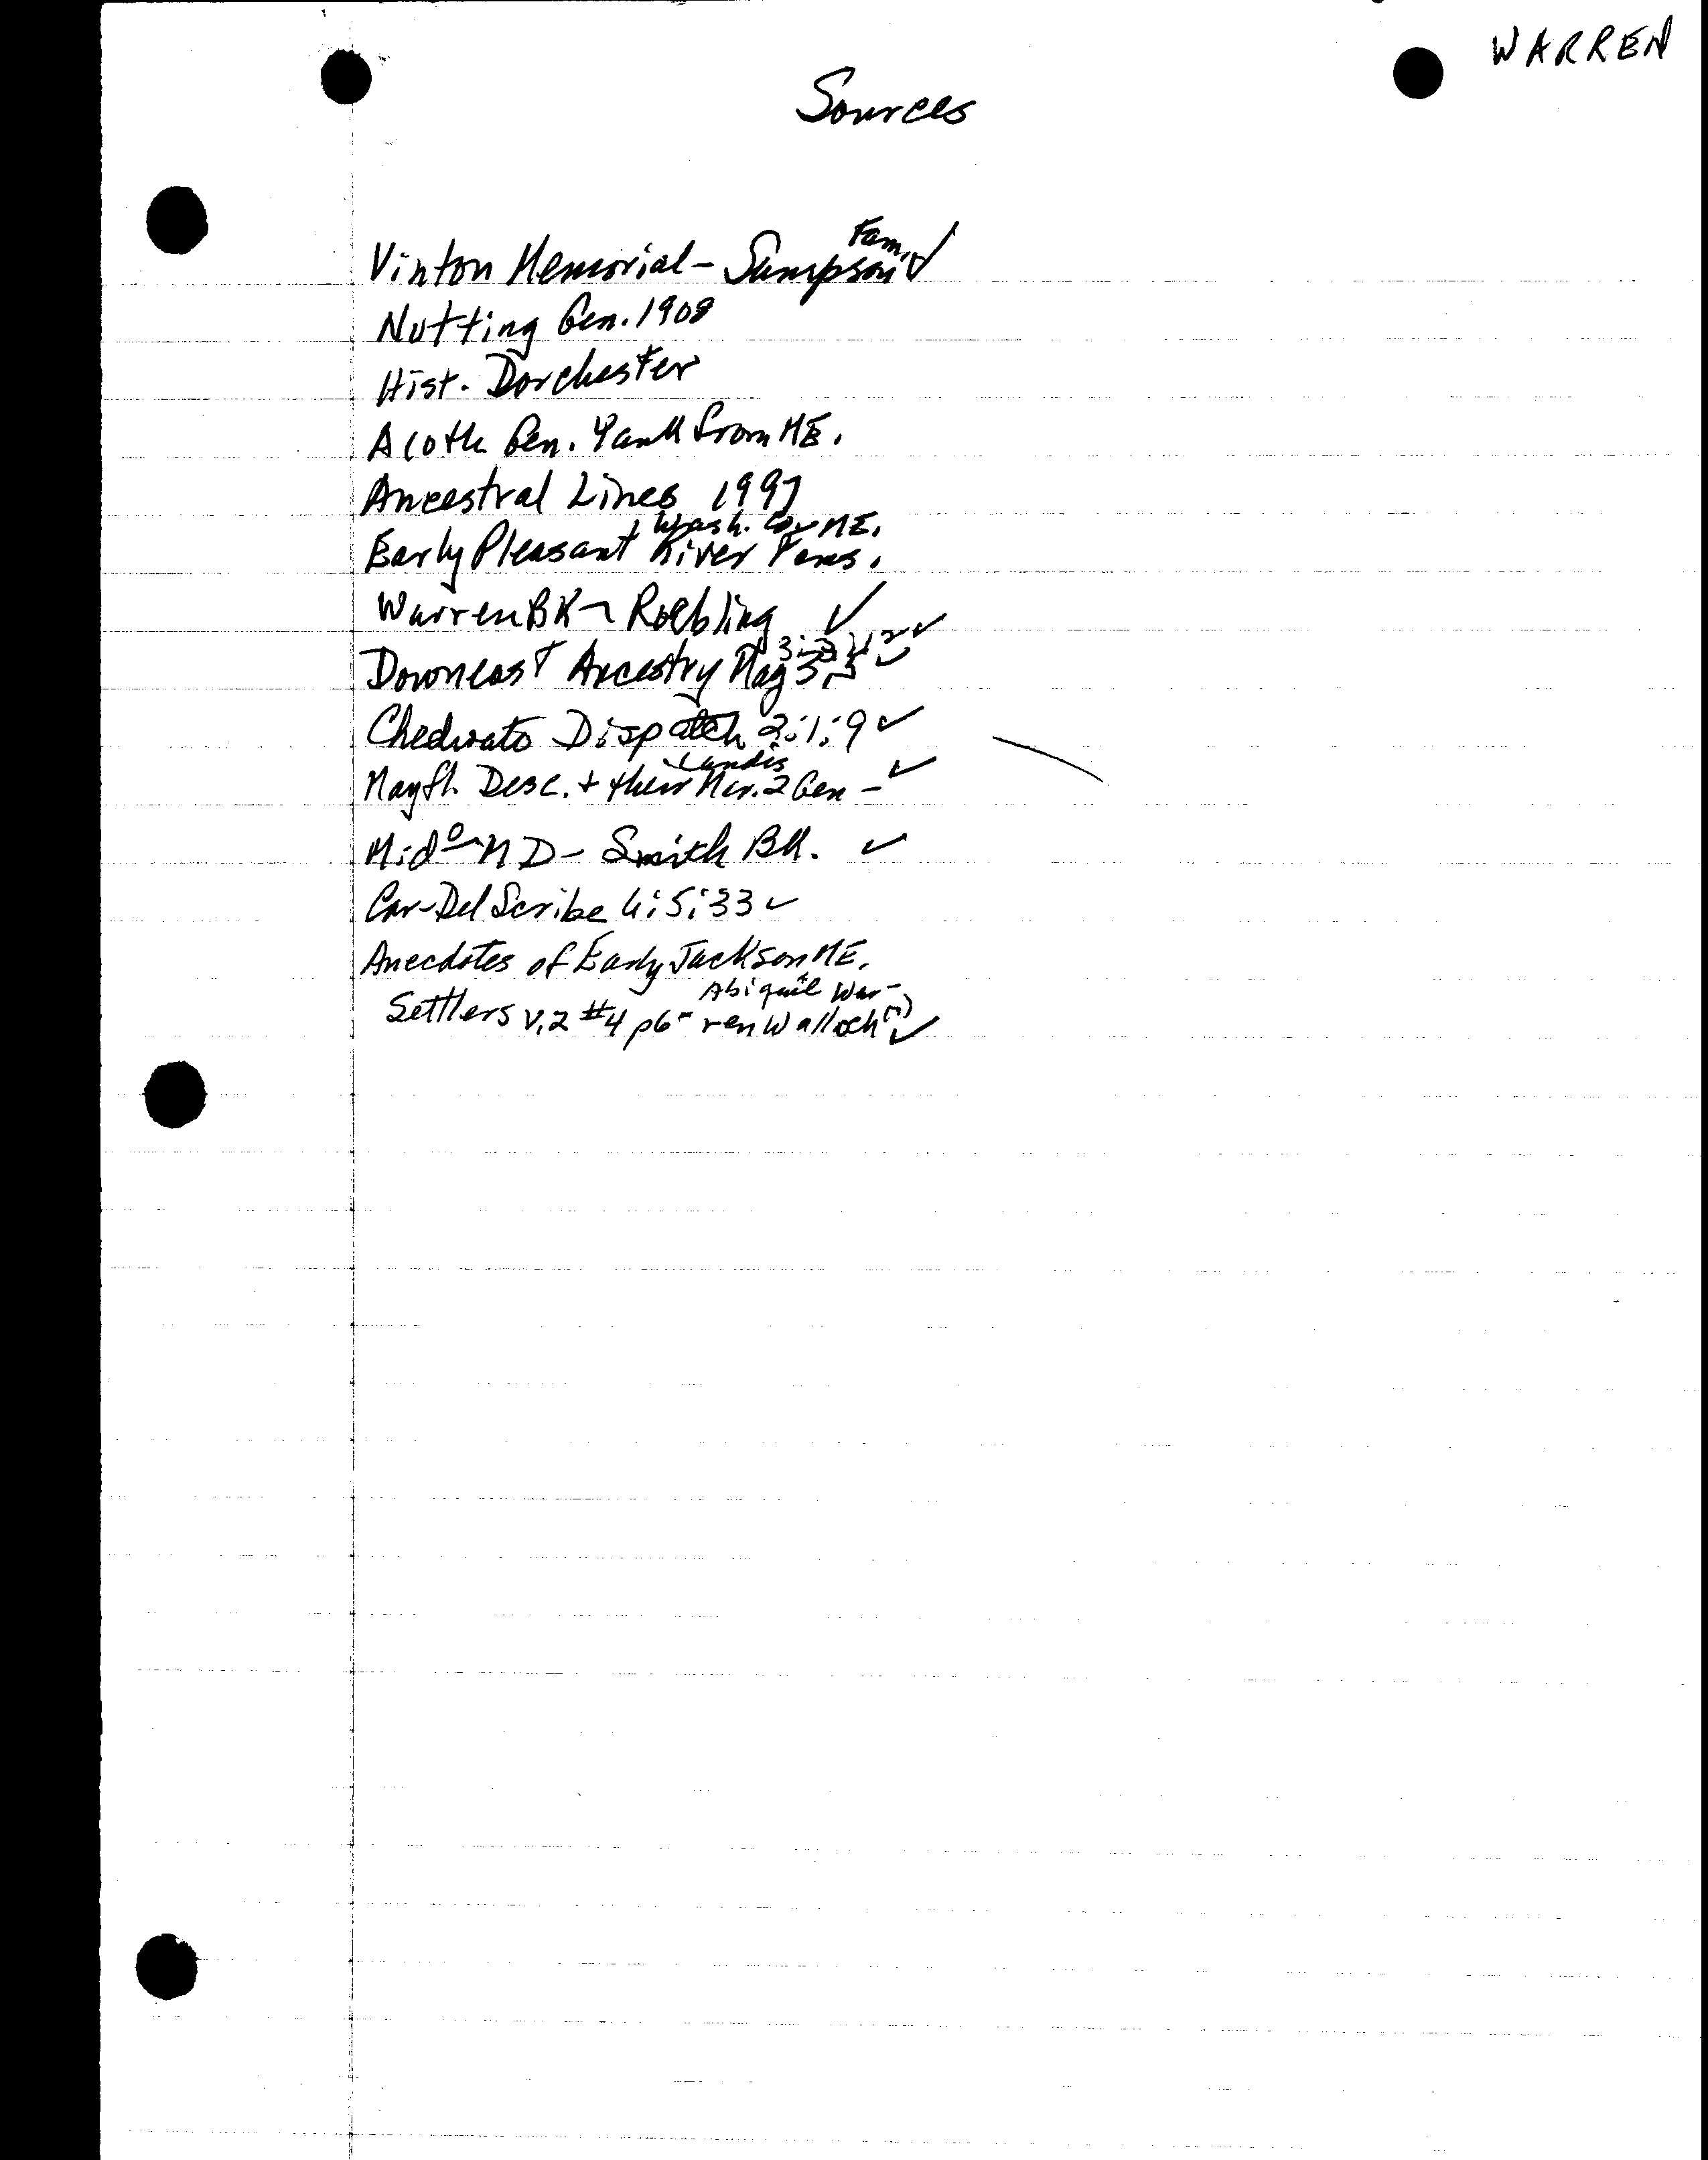 WARREN
Sources
Vinton Memorial - Sampson Fam. ✓
Nutting Gen. 1908
Hist. Dorchester
Gen. Yank from ME.
Ancestral Lines 1997
Wash. Co. ME.
Early Pleasant River Fams.
Warren BK - Roebling ✓
Downeast Ancestry Mag
Chedwato Dispatch 2:1:9 ✓
Landis
Mayfl. Desc. + their Mar. 2 Gen - ✓
Smith BK. ✓
Car-Del Scribe 4:5:33 ✓
Anecdotes of Early Jackson ME.
Abigail War-
Settlers v.2 #4 p6 - ren Walloch (?) ✓